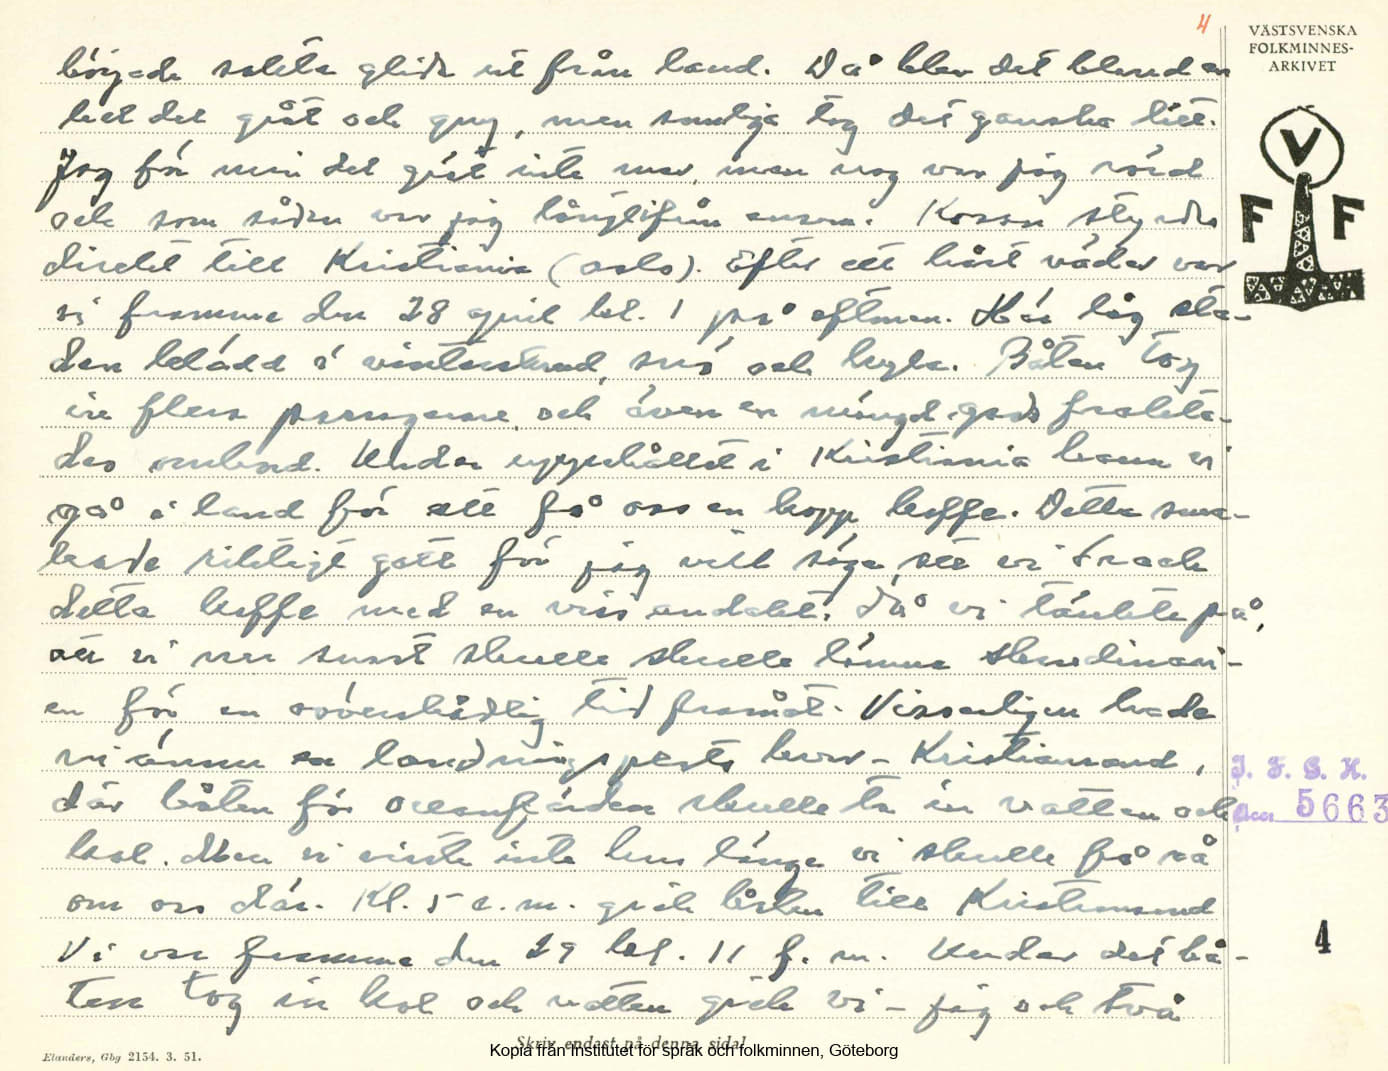 4
VÄSTSVENSKA
FOLKMINNES-
ARKIVET
V
F F
började sakta glida ut från land. Då blev det bland en
del det gråt och gny, men somliga tog det ganska lätt.
Jag för min del grät inte men, men nog var jag rörd
och som sådan var jag långtifrån ensam. Kosan styrdes
direkt till Kristiania (Oslo). Efter ett hårt väder var
vi framme den 28 april kl. 1 på eftmen. Här låg sta-
den klädd i vinterskrud, snö och kyla. Båten tog
in flera passagerare och även en mängd gods frakta-
des ombord. Under uppehållet i Kristiania hann vi
gå i land för att få oss en kopp kaffe. Detta sma-
kade riktigt gott för jag vill säga att vi drack
detta kaffe med en viss andakt, då vi tänkte på,
att vi nu snart skulle skulle lämna Skandinavi-
en för en oöverskådlig tid framåt. Visserligen hade
vi ännu en landningsplats kvar – Kristiansand,
där båten för oceanfärden skulle ta in vatten och
kol. Men vi visste inte hur länge vi skulle få rå
om oss där. Kl. 5 e.m. gick båten till Kristiansand
Vi var framme den 29 kl. 11 f.m. Under det bå-
ten tog in kol och vatten gick vi – jag och två
J. F. G. H.
Acc 5663
4
Skriv endast på denna sida!
Elanders, Gbg 2154. 3. 51.
Kopia från Institutet för språk och folkminnen, Göteborg